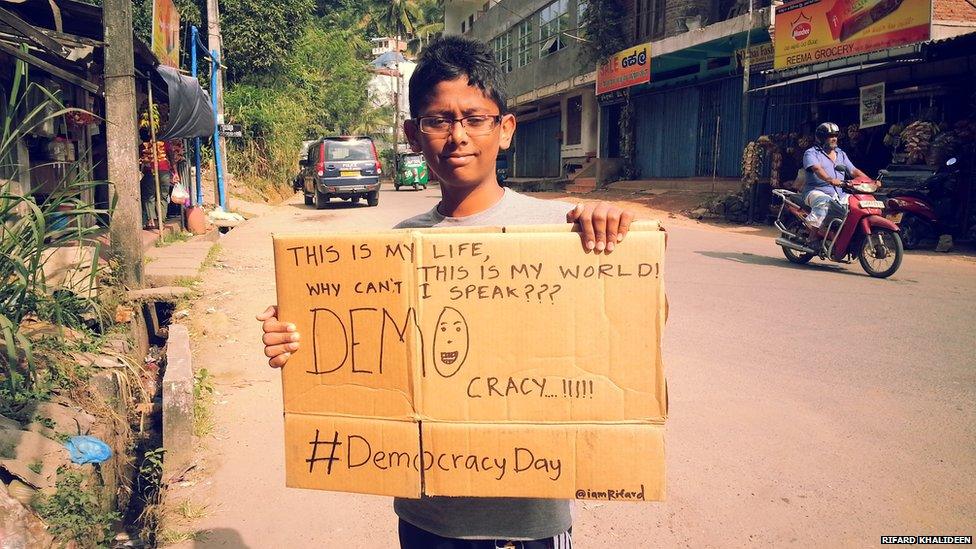 THIS IS MY LIFE,
THIS IS MY WORLD!
WHY CAN'T I SPEAK???
DEMO
CRACY....!!!!!
#DemocracyDay
@iamRifard
SALE
Munchee
REEMA GROCERY
RIFARD KHALIDEEN